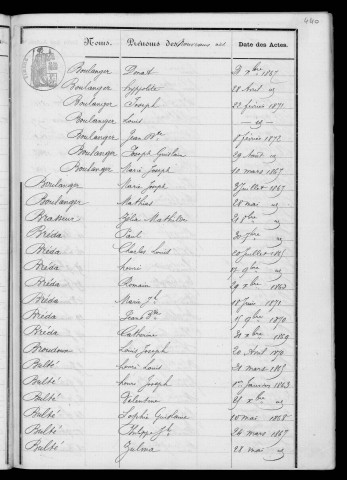 440
Noms. Prénoms des nouveaux nés Date des Actes.
Boulanger Donat 21 xbre 1867
Boulanger hyppolite 28 Avril id
Boulanger Joseph 22 février 1871
Boulanger Louis — id —
Boulanger Jean Bte 8 février 1872
Boulanger Joseph Guislain 29 Avril id
Boulanger Marie Joseph 10 mars 1867
Boulanger Marie Joseph Juillet 1867
Boulanger Mathias 28 mai id
Brasseur Mathilde 8bre id
Bréda Paul 7bre id
Bréda Charles Louis 20 Juillet
Bréda henri 9bre id
Bréda Romain 29 xbre
Bréda Marie Jh 18 Juin 1871
Bréda Jean Bte 9bre 1870
Bréda Catherine xbre 1869
Louis Joseph 20 Avril 1870
Bulté Louis mars
Bulté henri Joseph 1er Janvier 1863
Bulté Valentine xbre id
Bulté Sophie Guislaine 10 mai 1868
Bulté Philippe Jh 24 mars 1867
Bulté Zulma 28 mai id